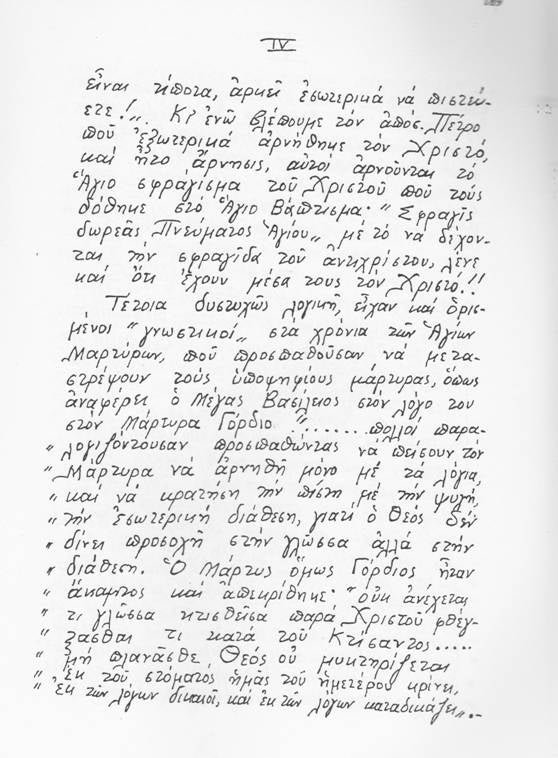 IV
εἶναι τίποτα, ἀρκεῖ ἐσωτερικά νά πιστεύ-
ετε!". Κι ἐνῶ βλέπουμε τόν ἀπόσ. Πέτρο
πού ἐξωτερικά ἀρνήθηκε τόν Χριστό,
καί ἦτο ἄρνησις, αὐτοί ἀρνοῦνται τό
Ἅγιο σφράγισμα τοῦ Χριστοῦ πού τούς
δόθηκε στό Ἅγιο Βάπτισμα· "Σφραγίς
δωρεᾶς Πνεύματος Ἁγίου", μέ τό νά δέχον-
ται τήν σφραγίδα τοῦ ἀντιχρίστου, λένε
καί ὅτι ἔχουν μέσα τους τόν Χριστό!!
Τέτοια δυστυχῶς λογική, εἶχαν καί ὁρισ-
μένοι "γνωστικοί" στά χρόνια τῶν Ἁγίων
Μαρτύρων, πού προσπαθοῦσαν νά μετα-
στρέψουν τούς ὑποψηφίους μάρτυρας, ὅπως
ἀναφέρει ὁ Μέγας Βασίλειος στόν λόγο του
στόν Μάρτυρα Γόρδιο "........πολλοί παρα-
" λογιζόντουσαν προσπαθώντας νά πείσουν τόν
" Μάρτυρα νά ἀρνηθῆ μόνο μέ τά λόγια,
" καί νά κρατήση τήν πίστη μέ τήν ψυχή,
" τήν ἐσωτερική διάθεση, γιατί ὁ Θεός δέν
" δίνει προσοχή στήν γλῶσσα ἀλλά στήν
" διάθεση. Ὁ Μάρτυς ὅμως Γόρδιος ἦταν
" ἄκαμπτος καί ἀπεκρίθηκε· "οὐκ ἀνέχεται
" τι γλῶσσα κτισθεῖσα παρά Χριστοῦ φθέγ-
" ξασθαι τι κατά τοῦ Κτίσαντος.....
" μή πλανᾶσθε, Θεός οὐ μυκτηρίζεται
" ἐκ τοῦ στόματος ἡμᾶς τοῦ ἡμετέρου κρίνει,
" ἐκ τῶν λόγων δικαιοῖ, καί ἐκ τῶν λόγων καταδικάζει".-